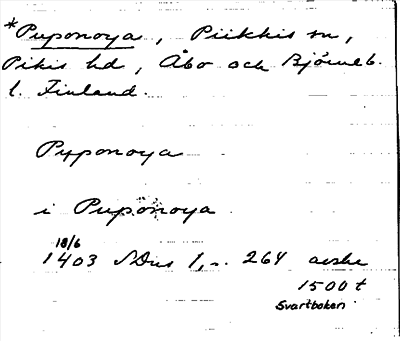 *Puponoya, Piikkis sn,
Pikis hd, Åbo och Björneb.
l. Finland.
Pyponoya
i Puponoya
18/6
1403 SDns 1, n. 264 avskr
1500 t
Svartboken